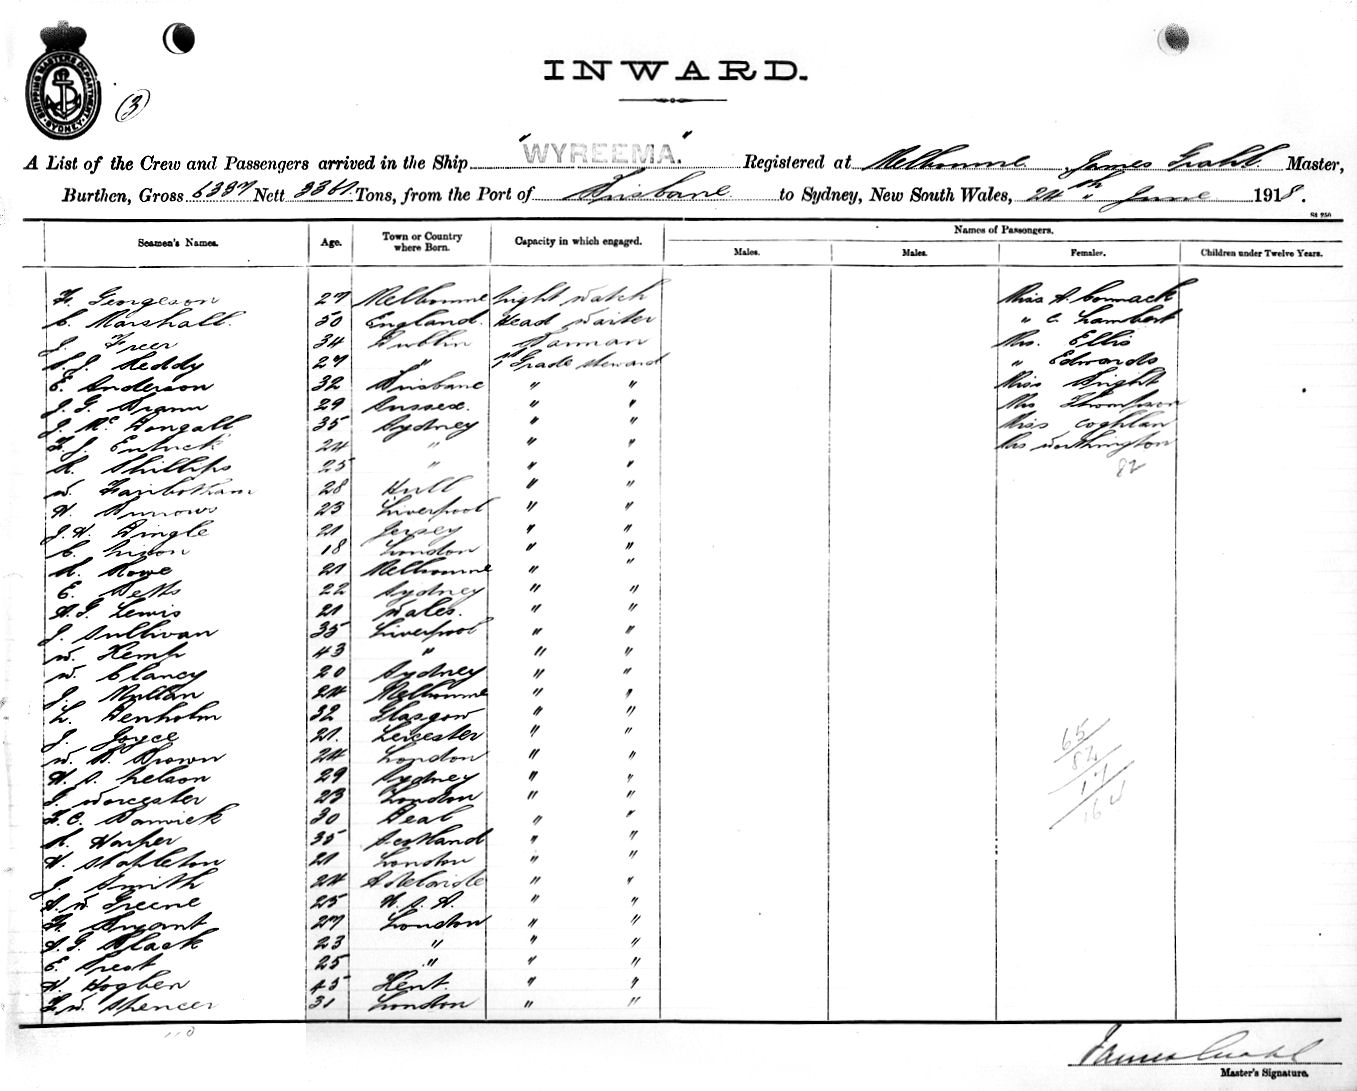 SHIPPING MASTERS DEPARTMENT SYDNEY
(3)
INWARD.
A List of the Crew and Passengers arrived in the Ship "WYREEMA." Registered at Melbourne James Grahl Master,
Burthen, Gross 6337 Nett 3361 Tons, from the Port of Brisbane to Sydney, New South Wales, 24th June 1918.
Seamen's Names. Age. Town or Country where Born. Capacity in which engaged. Names of Passengers.
Males. Males. Females. Children under Twelve Years.
F. Georgeson 27 Melbourne Night Watch Miss A. Cormack
C. Marshall. 50 England. Head Waiter " C. Lambert
J. Freer 34 Dublin Barman Mrs. Ellis
Reddy 27 " 1st Grade Steward " Edwards
E. Anderson 32 Brisbane " " Miss Bright
J. G. 29 Sussex. " " Mrs Thompson
J. McDougall 35 Sydney " " Miss Coghlan
F. J. 24 " " " Mrs Worthington
R. Phillips 25 " " " 82
W. 28 Hull " "
H. Burrows 23 Liverpool " "
J. H. Dingle 21 Jersey " "
C. Nixon 18 London " "
R. Rowe 21 Melbourne " "
E. Betts 22 Sydney " "
A. G. Lewis 21 Wales. " "
J. Sullivan 35 Liverpool " "
W. Kemp 43 " " "
W. Clancy 20 Sydney " "
J. Mullan 24 Melbourne " "
L. Denholm 32 Glasgow " "
J. Joyce 21. Leicester " "
W. B. Brown 24 London " "
H. S. Nelson 29 Sydney " "
J. Worcester 23 London " "
F. C. Barwick 30 Deal " "
R. Harper 35 Scotland " "
H. Stapleton 21 London " "
J. Smith 24 Adelaide " "
A. W. Greene 25 U. S. A. " "
F. Bryant 27 London " "
A. G. Black 23 " " "
E. Prest 25 " " "
H. Hogben 45 Kent. " "
F. W. Spencer 31 London " "
65
82
17
164
James Grahl
Master's Signature.